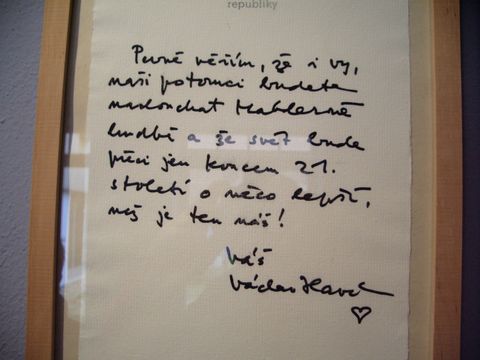 republiky
Pevně věřím, že i vy,
naši potomci budete
naslouchat Mahlerově
hudbě a že svět bude
přeci jen koncem 21.
století o něco lepší,
než je ten náš!
Váš
Václav Havel